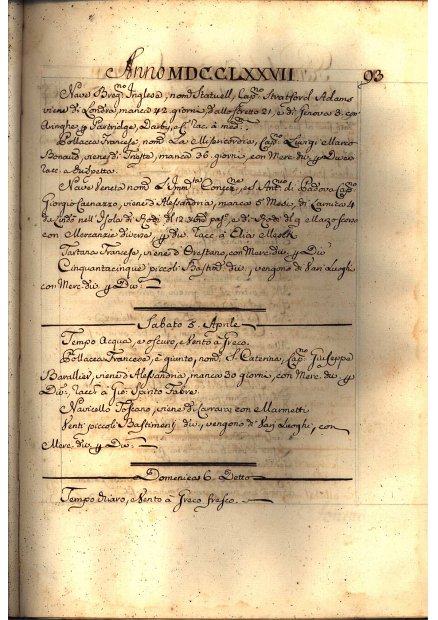 Anno MDCCLXXVII 93
Nave Breg.no Inglesa, nom.a Statuell, Cap.no Stratford Adams
viene di Londra, manca 42 giorni, dallo stretto 21, e di Genova 3. con
Aringhe, p Partridge, Darby, e C.i lac.i à med.i
Pollacca Francese, nom.a La Misericordia, Cap.no Luigi Marco
Bonaud, viene di Trieste, manca 36 giorni, con Merc. div. p Diversi
lacc. a
Nave Veneta nom.a L'Imm.ta Concez.ne, ed S. Ant.o di Padova Cap.no
Giorgio Caenazzo, viene d'Alessandria, manca 5 Mesi, di Larnica 4
da nell'Isola di Rodi di 12 pas.o e di Rodi d. 9 Marzo scorso
con Mercanzie diverse, p div. lacc. à Elia
Tartana Francese, viene d'Orestano, con Merc. div. p Div.i
Cinquantacinque piccoli Bastim.ti div., vengono di Varj Luoghi
con Merc. div. p Div.i
Sabato 5. Aprile
Tempo Acqua, e oscuro, e Vento à Greco.
Pollacca Francese, è giunto, nom.a S. Caterina, Cap.no Giuseppe
Barallier, viene d'Alessandria, manca 30 giorni, con Merc. div. p
Div.i, lacc. a Gio: Spirito Fabre
Navicello Toscano, viene di Carrara con Marmetti
Venti piccoli Bastimenti div., vengono di Varj Luoghi, con
Merc. div. p Div.i
Domenica 6. Detto
Tempo chiaro, e Vento à Greco fresco.